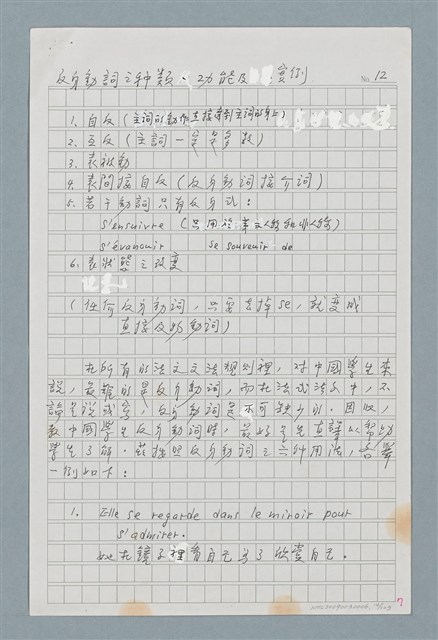 反身動詞之種類、功能及實例
No. 12
1. 自反(主詞的動作直接考到主詞的身上)
2. 互反(主詞一定是多數)
3. 表被動
4. 表間接自反(反身動詞接介詞)
5. 若干動詞只有反身式:
s'ensuivre (只用於第三人稱和非人稱)
s'évanouir se souvenir de
6. 表狀態之改變
(任何反身動詞,只要去掉se,就變成
直接及物動詞)
在所有的法文文法規則裡,對中國學生來
說,最難的是反身動詞,而在法文法文中,不
論是說或寫,反身動詞是不可缺少的。因此,
教中國學生反身動詞時,最好是先直譯以幫助
學生了解。茲按照反身動詞之六種用法,各舉
一例如下:
1. Elle se regarde dans le miroir pour
s'admirer.
她在鏡子裡看自己為了欣賞自己。
7